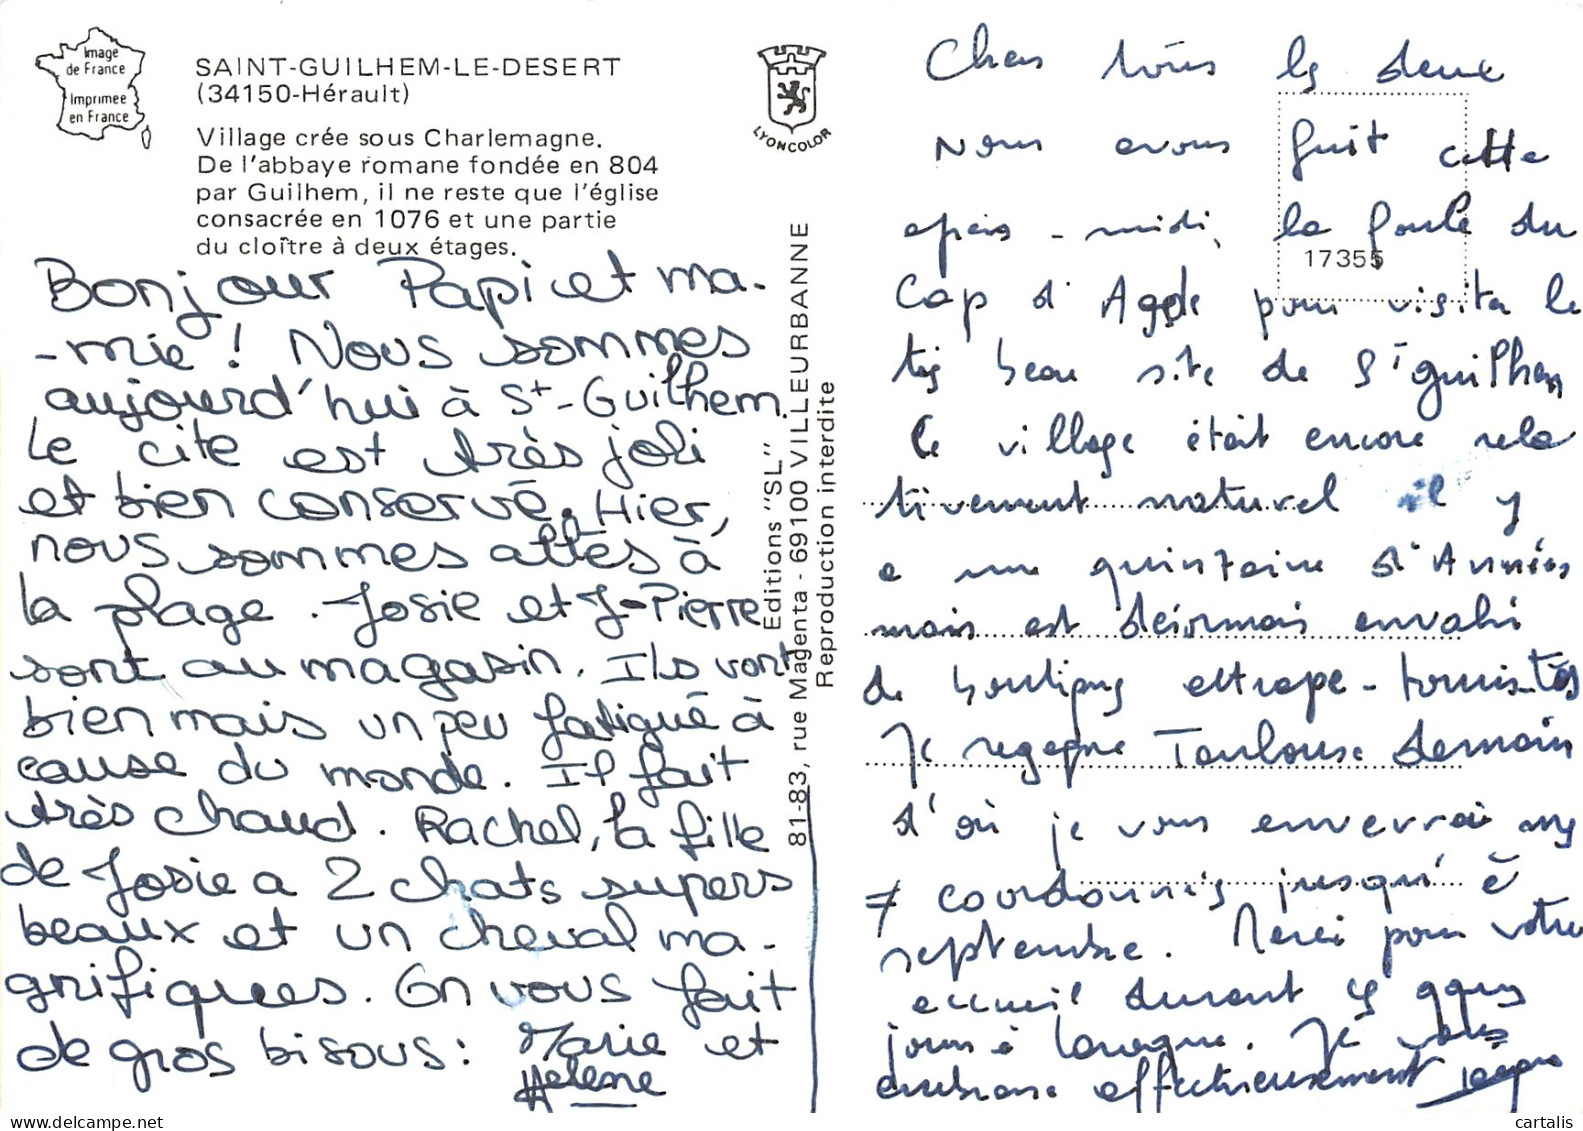 Image
de France
Imprimée
en France
SAINT-GUILHEM-LE-DESERT
(34150-Hérault)
Village crée sous Charlemagne.
De l'abbaye romane fondée en 804
par Guilhem, il ne reste que l'église
consacrée en 1076 et une partie
du cloître à deux étages.
LYONCOLOR
Bonjour Papi et ma-
-mie ! Nous sommes
aujourd'hui à St-Guilhem.
Le cite est très joli
et bien conservé. Hier,
nous sommes allés à
la plage. Josie et J-Pierre
sont au magasin. Ils vont
bien mais un peu fatigué à
cause du monde. Il fait
très chaud. Rachel, la fille
de Josie a 2 chats supers
beaux et un cheval ma-
gnifiques. On vous fait
de gros bisous : Marie et
Helene
Editions "SL"
81-83, rue Magenta - 69100 VILLEURBANNE
Reproduction interdite
17355
Chers tous les deux
Nous avons fuit cette
après-midi, la foule du
Cap d'Agde pour visiter le
très beau site de St Guilhem
Ce village était encore rela
tivement naturel il y
a une quinzaine d'Années
mais est désormais envahi
de boutiques attrape-touristes
Je regagne Toulouse demain
d'où je vous enverrai my
≠ coordonnées jusqu'à
septembre. Merci pour votre
accueil durant ces qques
jours à . Je vous
embrasse affectueusement
cartalis